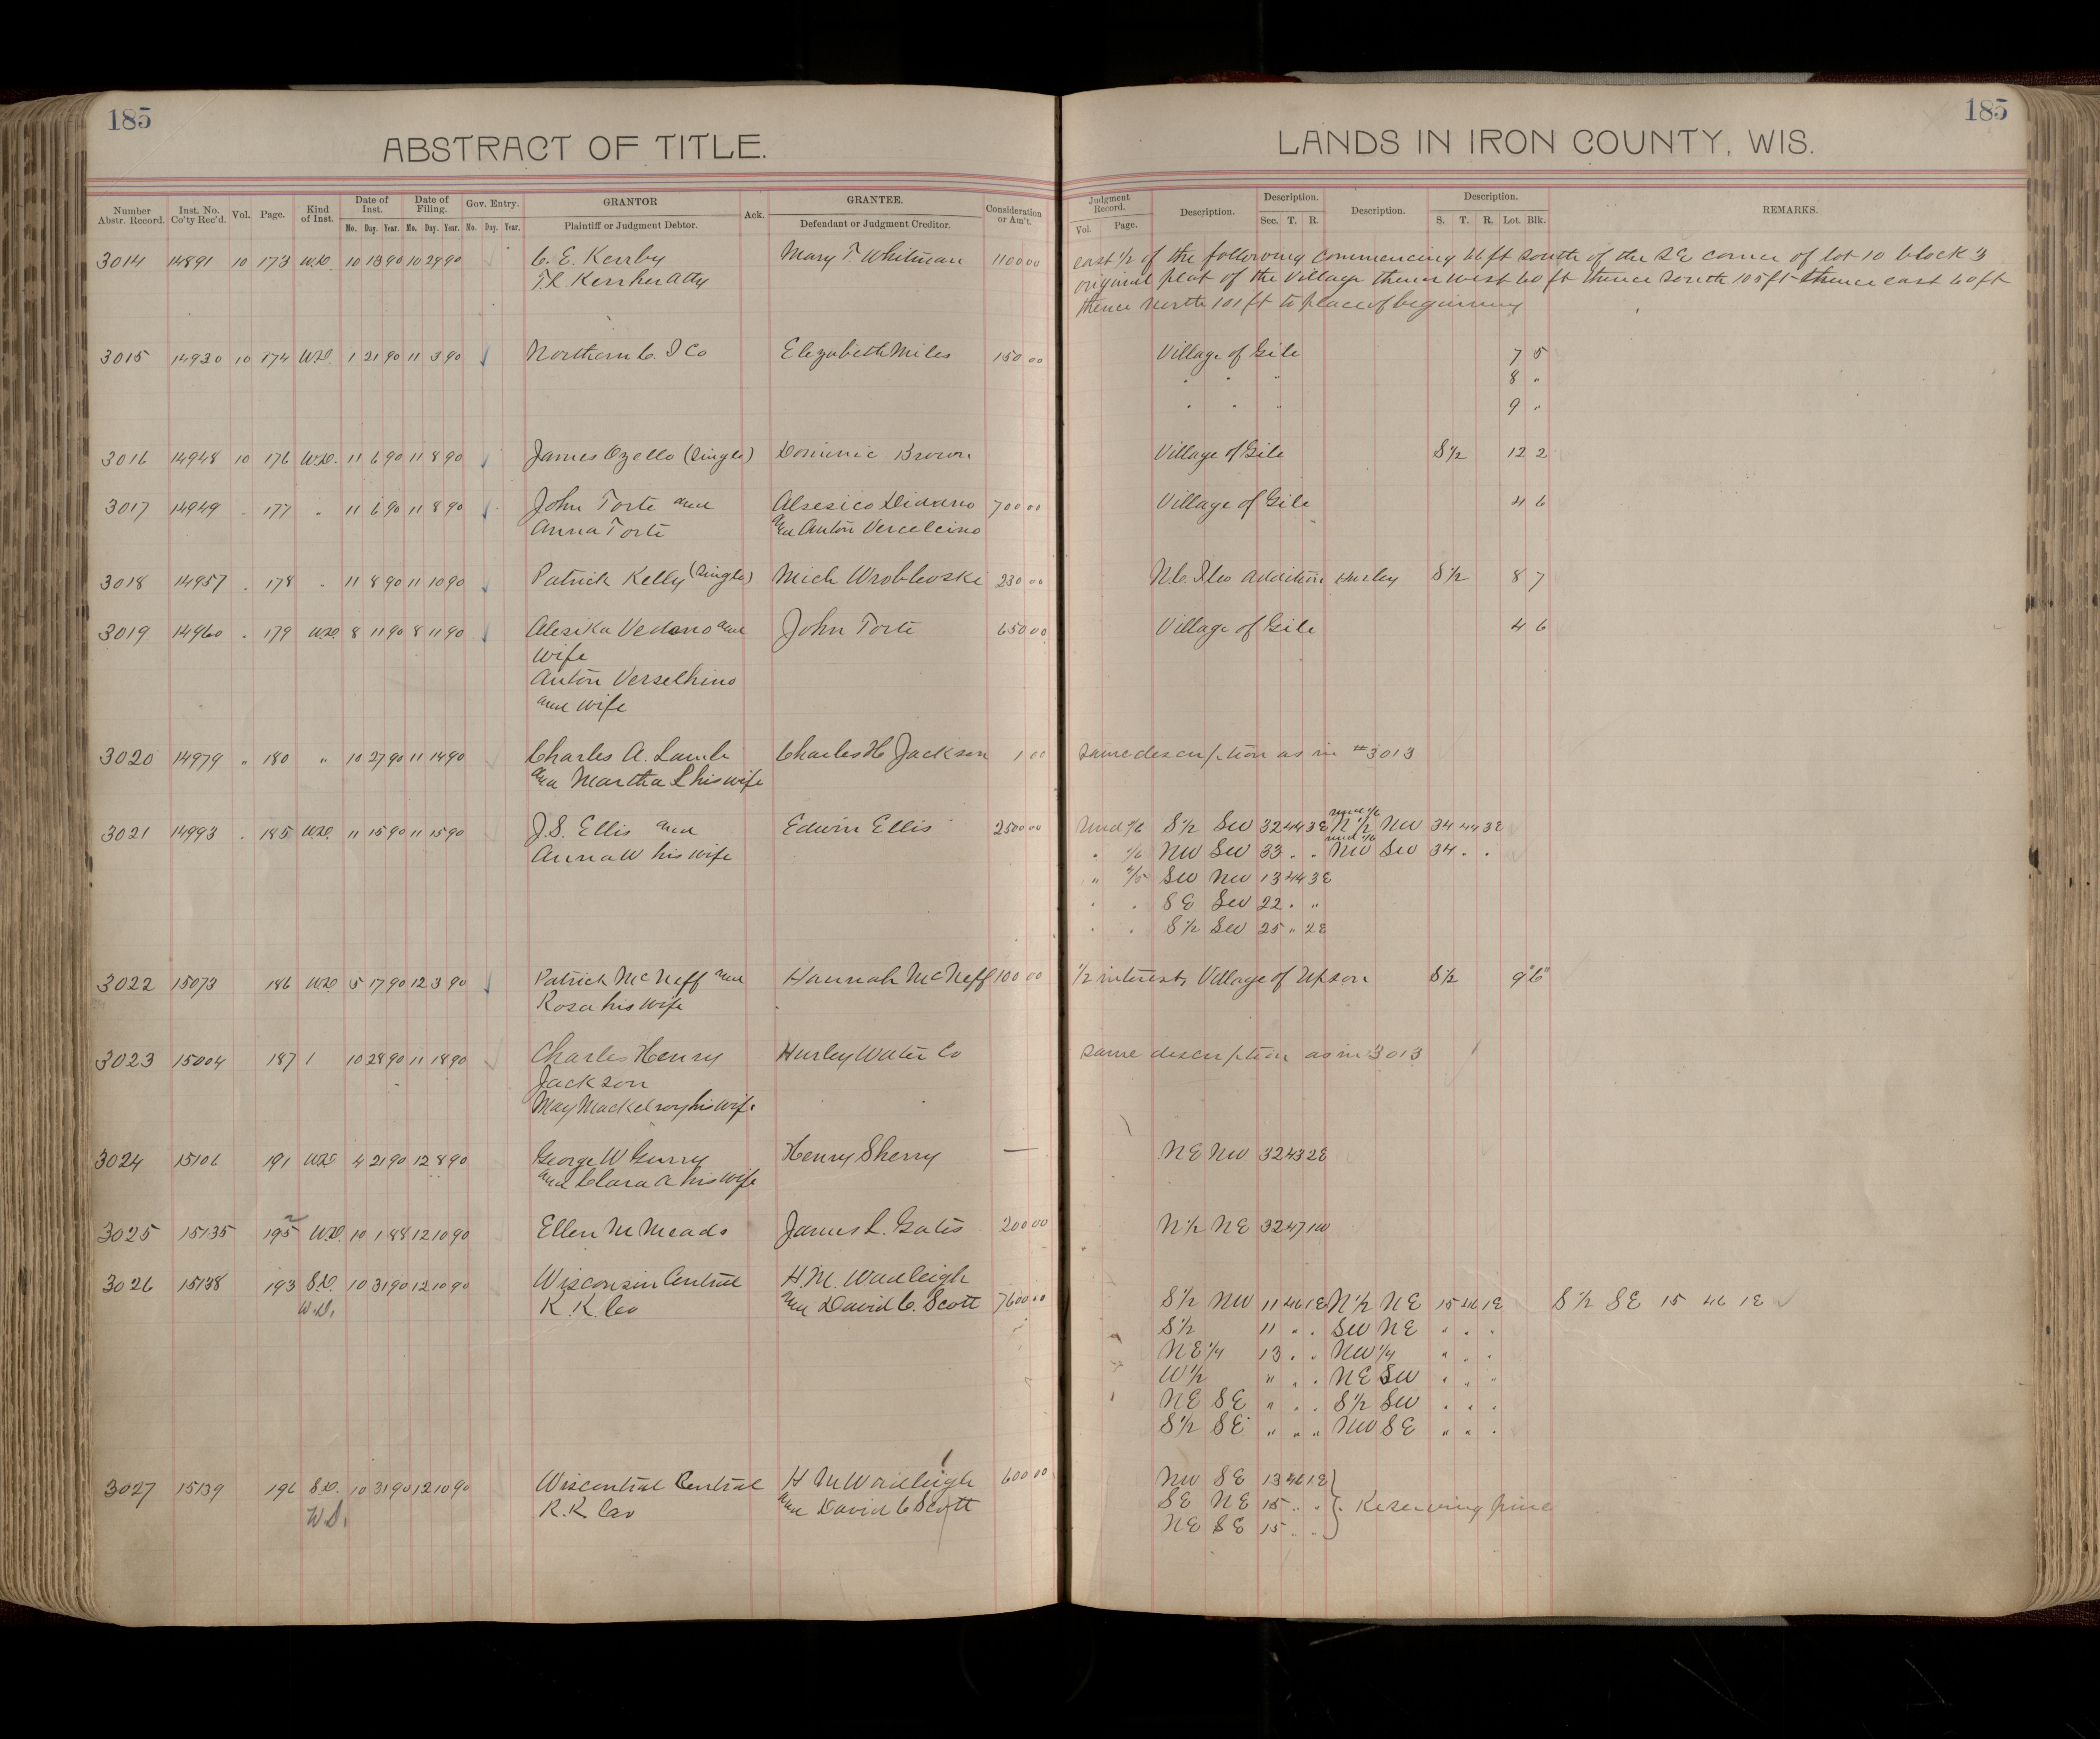 185
ABSTRACT OF TITLE.
Number Abstr. Record. Inst. No. Co'ty Rec'd. Vol. Page. Kind of Inst. Date of Inst. Mo. Day. Year. Date of Filing. Mo. Day. Year. Gov. Entry. Mo. Day. Year. GRANTOR Plaintiff or Judgment Debtor. Ack. GRANTEE. Defendant or Judgment Creditor. Consideration or Am't.
3014 14891 10 173 W.D. 10 13 90 10 29 90 C. E. Kerrby Mary T Whitman 110000
3015 14930 10 174 W.D. 1 21 90 11 3 90 Northern C. I Co Elizabeth Miles 150 00
3016 14948 10 176 W.D. 11 6 90 11 8 90 James Ozello (Single) Dominic Brown
3017 14949 " 177 " 11 6 90 11 8 90 John Torte and Alsesico Didano 700 00
Anna Torte and Anton Vercelcino
3018 14957 " 178 " 11 8 90 11 10 90 Patrick Kelly (Single) Mich Wroblwoski 230 00
3019 14960 " 179 W.D. 8 11 90 8 11 90 Alesika Vedano and John Torte 650 00
wife
Anton Verselhino
and wife
3020 14979 " 180 " 10 27 90 11 14 90 Charles A. Lamb Charles H Jackson 1 00
and Martha L his wife
3021 14993 " 185 W.D. 11 15 90 11 15 90 J. S. Ellis and Edwin Ellis 2500 00
Anna W his wife
3022 15073 186 W.D 5 17 90 12 3 90 Patrick McNeff and Hannah McNeff 100 00
Rosa his wife
3023 15004 187 1 10 28 90 11 18 90 Charles Henry Hurley Water Co
Jackson
May Mackelroy his wife
3024 15106 191 W.D 4 21 90 12 8 90 George W Gurry Henry Sherry —
and Clara A his wife
3025 15135 195 W.D. 10 1 88 12 10 90 Ellen M Meads James L. Gates 200 00
3026 15138 193 S.D. 10 31 90 12 10 90 Wisconsin Central H. M. Wadleigh
W.D. R. R. Co and David C. Scott 7600 00
3027 15139 196 S.D. 10 31 90 12 10 90 Wiscentral Central H M Wadleigh 600 00
W.D. R. R Co and David C Scott
185
LANDS IN IRON COUNTY, WIS.
Judgment Record. Vol. Page. Description. Description. Sec. T. R. Description. Description. S. T. R. Lot. Blk. REMARKS.
east 1/2 of the following commencing 46 ft south of the SE corner of lot 10 block 3
original plat of the Village thence west 60 ft thence south 105 ft thence east 60 ft
thence north 101 ft to place of beginning
Village of Gile 7 5
" " " 8 "
" " " 9 "
Village of Gile S 1/2 12 2
Village of Gile 4 6
N.C. I Co Addition Hurley S 1/2 8 7
Village of Gile 4 6
same description as in #3013
und 1/6
Und 1/6 S 1/2 SW 32 44 3E N 1/2 NW 34 44 3E
und 1/6
" 1/6 NW SW 33 " " NW SW 34 " "
" 4/5 SW NW 13 44 3E
" " SE SW 22 " "
" " S 1/2 SW 25 " 2E
1/2 interest, Village of Upson S 1/2 9 "6"
same description as in 3013
NE NW 32 43 2E
N 1/2 NE 32 47 1W
S 1/2 NW 11 46 1E N 1/2 NE 15 46 1E S 1/2 SE 15 46 1E
S 1/2 11 " " SW NE " " "
NE 1/4 13 " " NW 1/4 " " "
W 1/2 " " " NE SW " " "
NE SE " " " S 1/2 SW " " "
S 1/2 SE " " " NW SE " " "
NW SE 13 46 1E
SE NE 15 " " Reserving pine
NE SE 15 " "